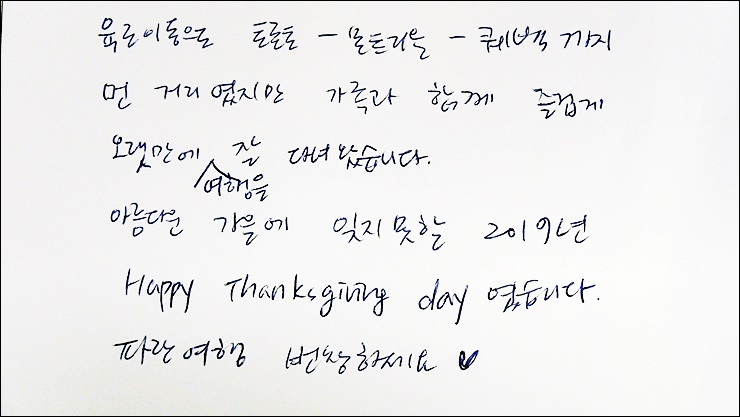 육로이동으로 토론토 - 몬트리올 - 퀘벡 까지
먼 거리 였지만 가족과 함께 즐겁게
오랫만에 여행을 잘 다녀왔습니다.
아름다운 가을에 잊지못할 2019년
Happy Thanksgiving day 였습니다.
파란여행 번창하세요